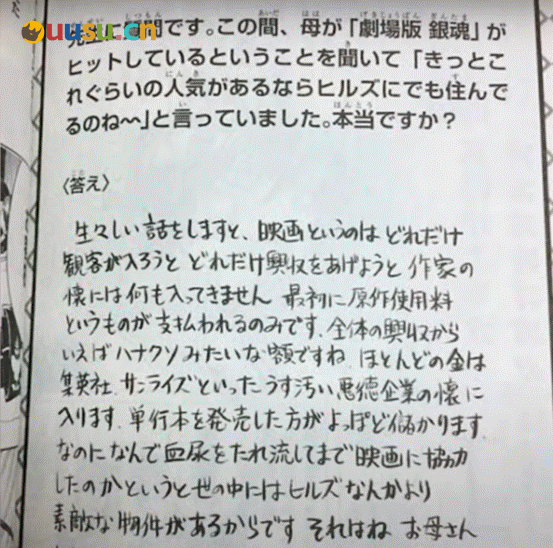 uusu.cn
です。この間、母が「劇場版 銀魂」が
ヒットしているということを聞いて「きっとこ
れぐらいの人気があるならヒルズにでも住んで
るのね〜」と言っていました。本当ですか？
〈答え〉
生々しい話をしますと、映画というのは どれだけ
観客が入ろうと どれだけ興収をあげようと 作家の
懐には何も入ってきません 最初に原作使用料
というものが支払われるのみです、全体の興収から
いえばハナクソみたいな額ですね、ほとんどの金は
集英社、サンライズといったうす汚い悪徳企業の懐に
入ります、単行本を発売した方がよっぽど儲かります
なのになんで血尿をたれ流してまで映画に協力
したのかというと世の中にはヒルズなんかより
素敵な物件があるからです それはね お母さん